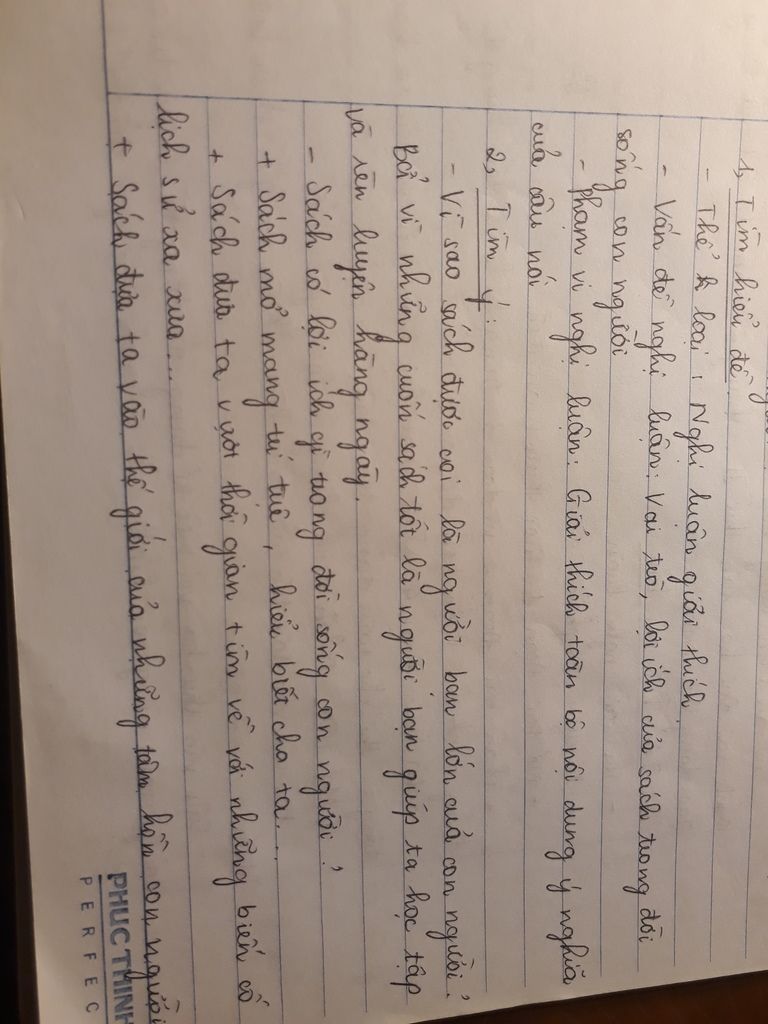 1, Tìm hiểu đề
- Thể loại: Nghị luận giải thích.
- Vấn đề nghị luận: Vai trò, lợi ích của sách trong đời
sống con người
- Phạm vi nghị luận: Giải thích toàn bộ nội dung ý nghĩa
của câu nói
2, Tìm ý:
- Vì sao sách được coi là người bạn lớn của con người?
Bởi vì những cuốn sách tốt là người bạn giúp ta học tập
và rèn luyện hàng ngày.
- Sách có lợi ích gì trong đời sống con người?
+ Sách mở mang trí tuệ, hiểu biết cho ta...
+ Sách đưa ta vượt thời gian tìm về với những biến cố
lịch sử xa xưa...
+ Sách đưa ta vào thế giới của những tâm hồn con người
PHUCTHINH
PERFEC